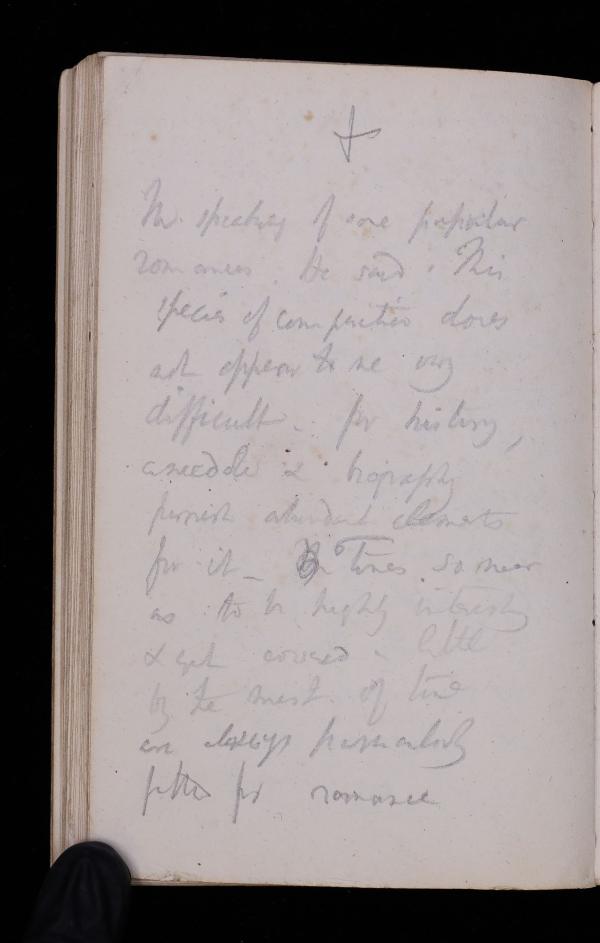 In speaking of some popular
romances. He said. This
species of composition does
not appear to me very
difficult - for history,
anecdote & biography
furnish abundant elements
for it _ Times so near
as to be highly interesting
& yet covered a little
by the mist of time
are always particularly
fitted for romance